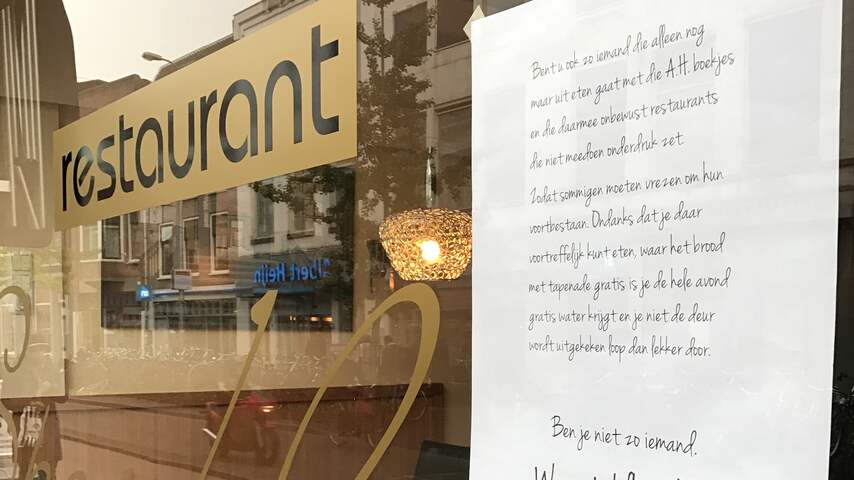 restaurant
Albert Heijn
Bent u ook zo iemand die alleen nog
maar uit eten gaat met die A.H. boekjes
en die daarmee onbewust restaurants
die niet meedoen onderdruk zet.
Zodat sommigen moeten vrezen om hun
voortbestaan. Ondanks dat je daar
voortreffelijk kunt eten, waar het brood
met tapenade gratis is je de hele avond
gratis water krijgt en je niet de deur
wordt uitgekeken loop dan lekker door.
Ben je niet zo iemand.